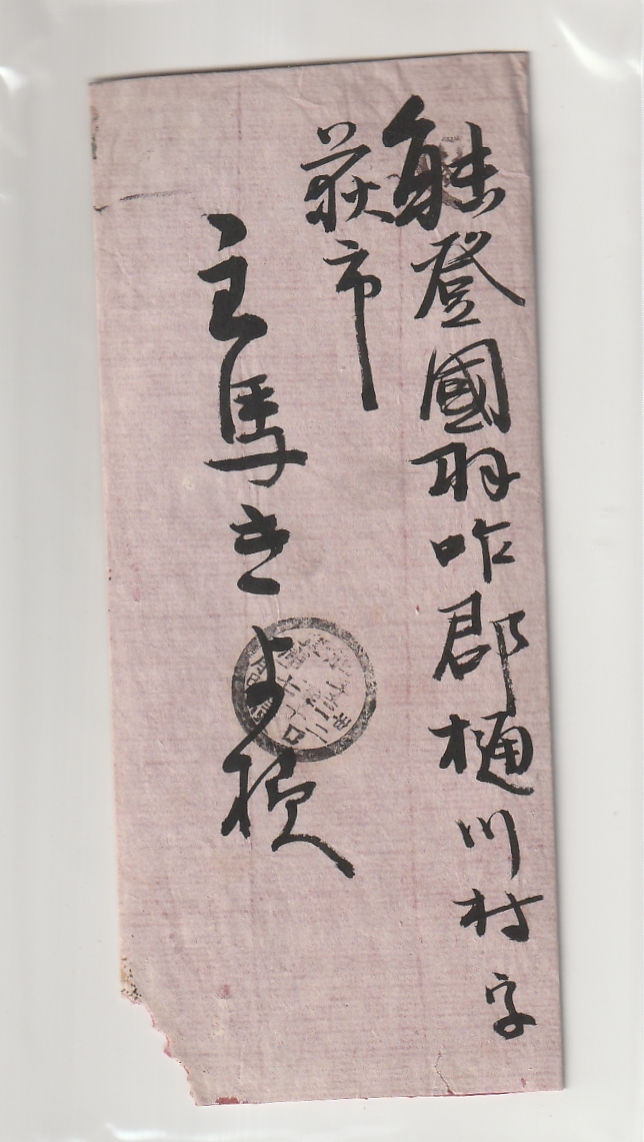 能登國羽咋郡樋川村字
荻市
主馬きよ様